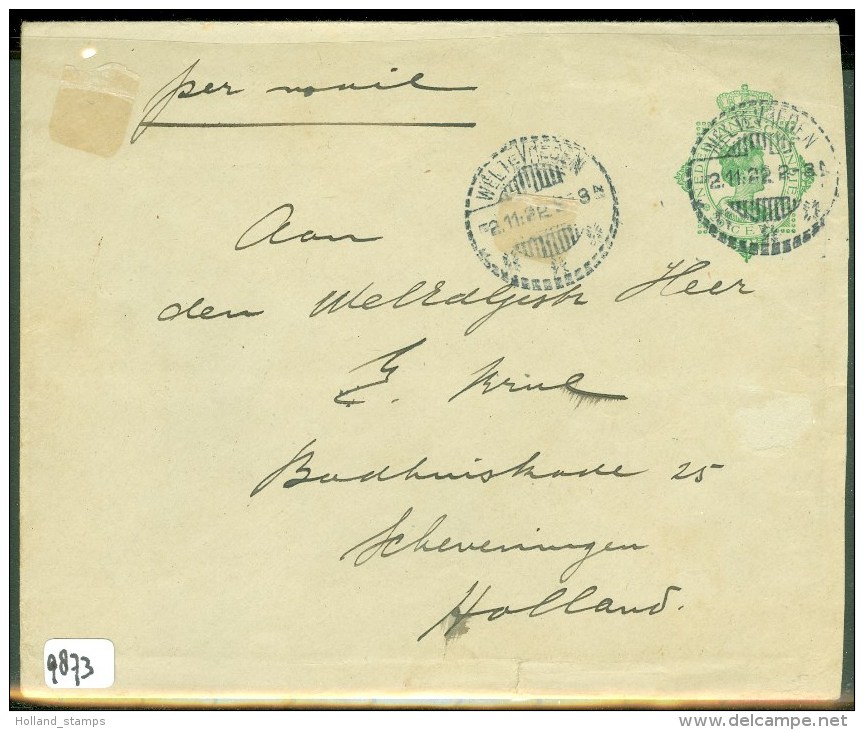 per mail
WELTEVREDEN
2.11.22. 8
WELTEVREDEN
2.11.22. 8
Aan
den WelEdlgestr Heer
E. Krul
Badhuiskade 25
Scheveningen
Holland.
9873
Holland_stamps
www.delcampe.net